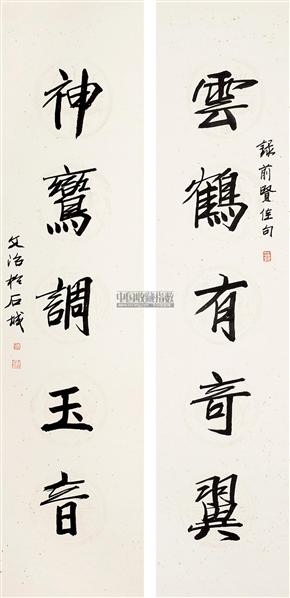 雲鶴有奇翼
錄前賢佳句
神鸞調玉音
文治於石城
中国收藏指数